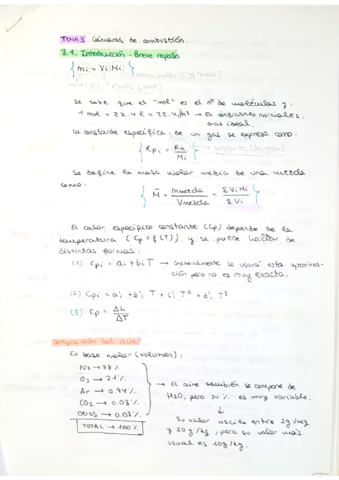 TEMA 3 Cámaras de combustión.
3.1. Introducción - Breve repaso
{ mi = Vi Mi }
Se sabe que el "mol" es el nº de moléculas y:
1 mol = 22.4 l = 22.4 → En condiciones normales.
Gas ideal.
La constante específica de un gas se expresa como:
{ Rpi = Ru / Mi } → constante Universal
Se define la masa molar media de una mezcla
como:
{ M̄ = mmezcla / Vmezcla = ΣViMi / ΣVi }
El calor específico constante (Cp) depende de la
temperatura (Cp = f(T)) y se puede hallar de
distintas formas:
(1) Cpi = ai + bi T → Generalmente se usará esta aproxima-
ción pero no es muy exacta.
(2) Cpi = a'i + b'i T + c'i T² + d'i T³
(3) Cp = Δh / ΔT
Composición del aire
En base molar (volumen):
N2 → 78 %
O2 → 21 %
Ar → 0.94 %
CO2 → 0.03 %
OTROS → 0.03 %
TOTAL → 100 %
→ El aire también se compone de
H2O, pero su % es muy variable.
Su valor oscila entre 2g/kg
y 20 g/kg, pero su valor más
usual es 10g/kg.